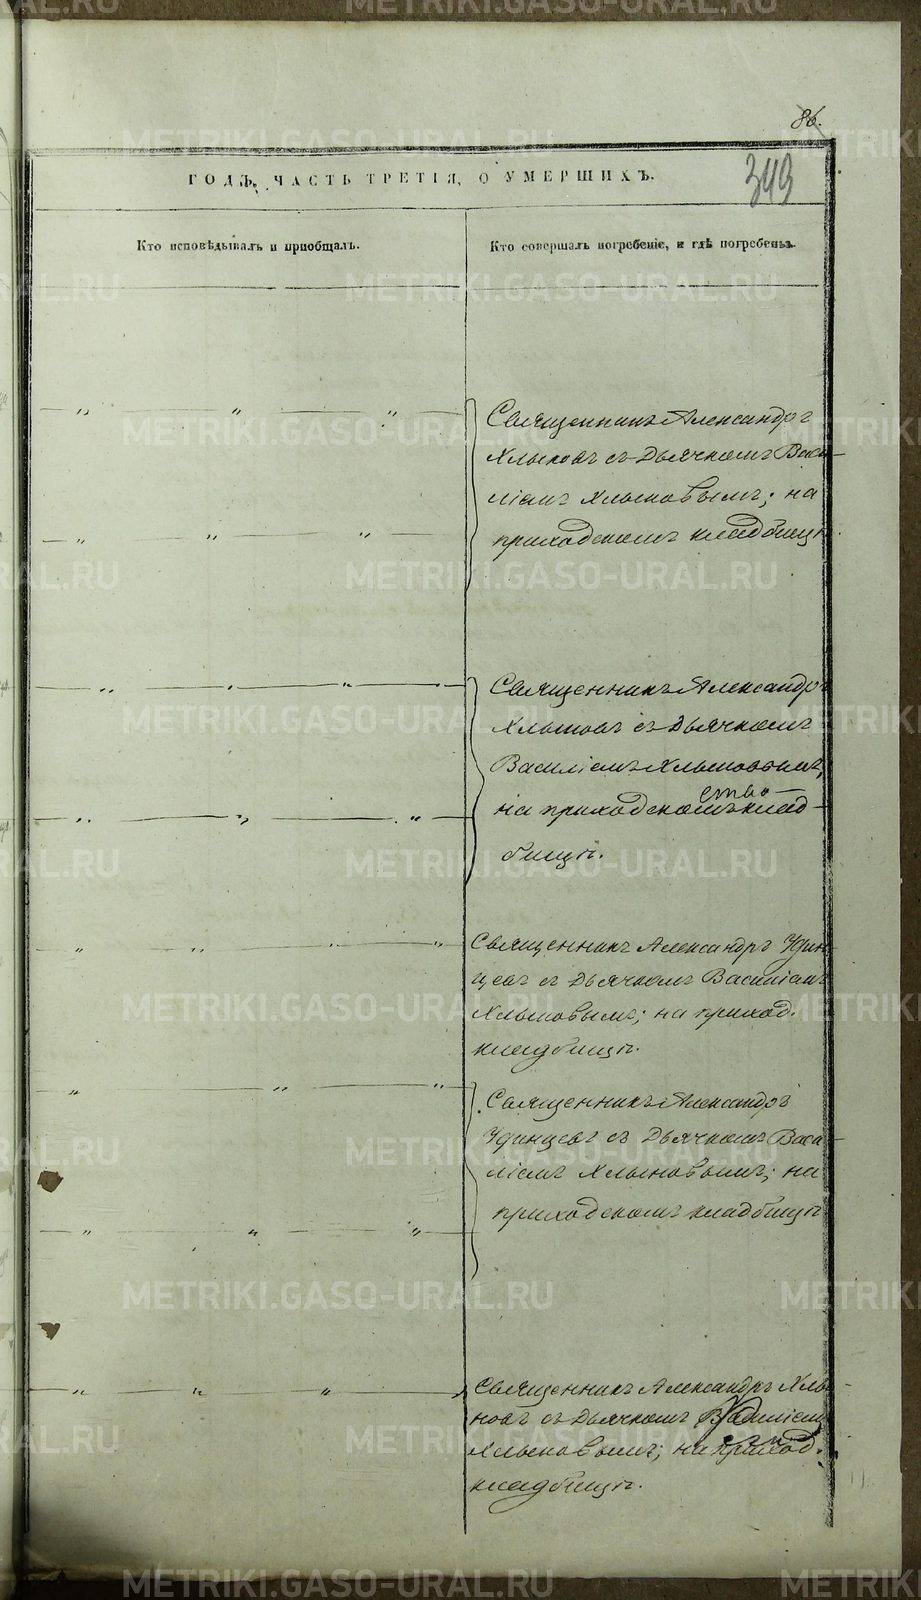 86.
349
ГОДЪ, ЧАСТЬ ТРЕТІЯ, О УМЕРШИХЪ.
Кто исповѣдывалъ и пріобщалъ.
Кто совершалъ погребеніе, и гдѣ погребены.
Священникъ Александръ
Хлыновъ съ Дьячкомъ Васи-
ліемъ Хлыновымъ; на
приходскомъ кладбищѣ.
Священникъ Александръ
Хлыновъ съ Дьячкомъ
Василіемъ Хлыновымъ,
на приходскомъ клад-
бищѣ.
Священникъ Александръ Удин-
цевъ съ Дьячкомъ Василіемъ
Хлыновымъ; на приход.
кладбищѣ.
Священникъ Александръ
Удинцевъ съ Дьячкомъ Васи-
ліемъ Хлыновымъ; на
приходскомъ кладбищѣ
Священникъ Александръ Хлы-
новъ съ Дьячкомъ Василіемъ
Хлыновымъ; на приход.
кладбищѣ.
METRIKI.GASO-URAL.RU